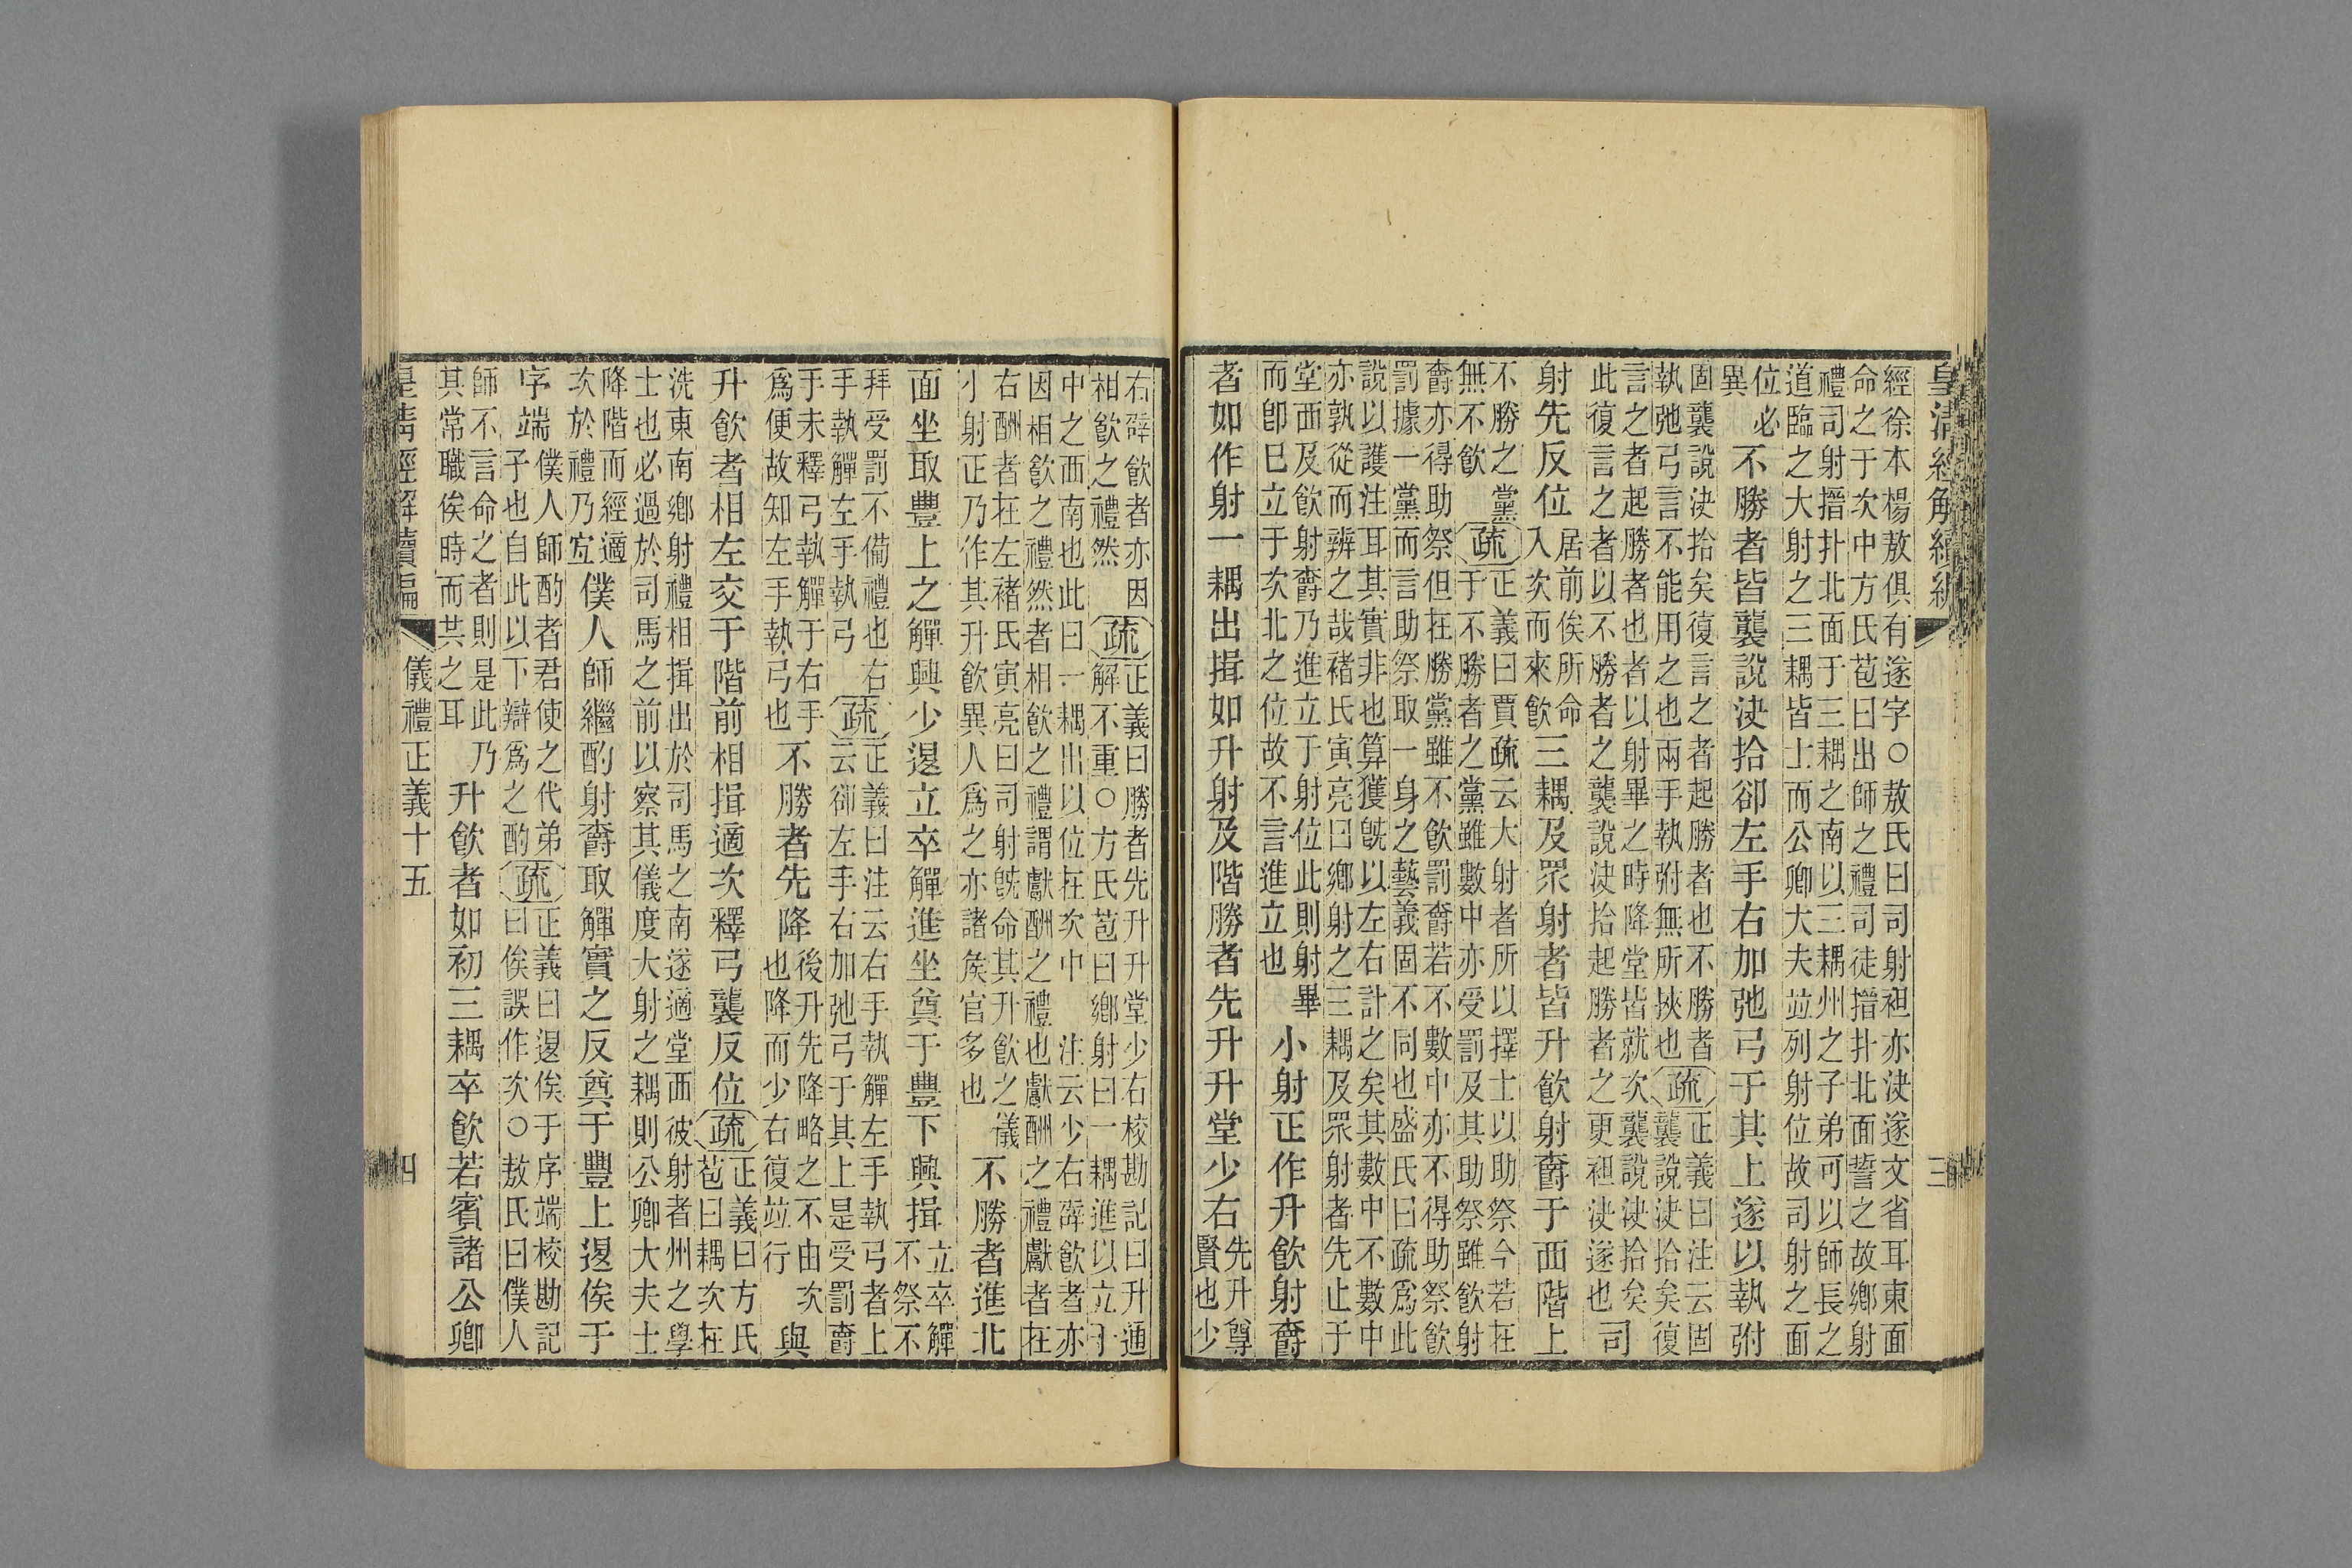 皇清經解續編
三
經徐本楊敖俱有遂字○敖氏曰司射袒亦決遂文省耳東面
命之于次中方氏苞曰出師之禮司徒搢扑北面誓之故鄉射
禮司射搢扑北面于三耦之南以三耦州之子弟可以師長之
道臨之大射之三耦皆士而公卿大夫竝列射位故司射之面
位必
異
不勝者皆襲說決拾卻左手右加弛弓于其上遂以執弣
固襲說決拾矣復言之者起勝者也不勝者
執弛弓言不能用之也兩手執弣無所挾也
疏
正義曰注云固
襲說決拾矣復
言之者起勝者也者以射畢之時降堂皆就次襲說決拾矣
此復言之者以不勝者之襲說決拾起勝者之更袒決遂也
司
射先反位
居前俟所命
入次而來飲
三耦及眾射者皆升飲射爵于西階上
不勝之黨
無不飲
疏
正義曰賈疏云大射者所以擇士以助祭今若在
于不勝者之黨雖數中亦受罰及其助祭雖飲射
爵亦得助祭但在勝黨雖不飲罰爵若不數中亦不得助祭飲
罰據一黨而言助祭取一身之藝義固不同也盛氏曰疏爲此
說以護注耳其實非也算獲旣以左右計之矣其數中不數中
亦孰從而辨之哉褚氏寅亮曰鄉射之三耦及眾射者先止于
堂西及飲射爵乃進立于射位此則射畢
而卽已立于次北之位故不言進立也
小射正作升飲射爵
者如作射一耦出揖如升射及階勝者先升升堂少右
先升尊
賢也少
右辟飲者亦因
相飲之禮然
疏
正義曰勝者先升升堂少右校勘記曰升通
解不重○方氏苞曰鄉射曰一耦進以立于
中之西南也此曰一耦出以位在次中
注云少右辟飲者亦
因相飲之禮然者相飲之禮謂獻酬之禮也獻酬之禮獻者在
右酬者在左褚氏寅亮曰司射旣命其升飲之儀
小射正乃作其升飲異人爲之亦諸矦官多也
不勝者進北
面坐取豐上之觶興少退立卒觶進坐奠于豐下興揖
立卒觶
不祭不
拜受罰不備禮也右
手執觶左手執弓
疏
正義曰注云右手執觶左手執弓者上
云卻左手右加弛弓于其上是受罰爵
手未釋弓執觶于右手
爲便故知左手執弓也
不勝者先降
後升先降略之不由次
也降而少右復竝行
與
升飲者相左交于階前相揖適次釋弓襲反位
疏
正義曰方氏
苞曰耦次在
洗東南鄉射禮相揖出於司馬之南遂適堂西彼射者州之學
士也必過於司馬之前以察其儀度大射之耦則公卿大夫士
降階而經適
次於禮乃宜
僕人師繼酌射爵取觶實之反奠于豐上退俟于
序端
僕人師酌者君使之代弟
子也自此以下辯爲之酌
疏
正義曰退俟于序端校勘記
曰俟誤作次○敖氏曰僕人
師不言命之者則是此乃
其常職俟時而共之耳
升飲者如初三耦卒飲若賓諸公卿
皇清經解續編
儀禮正義十五
四